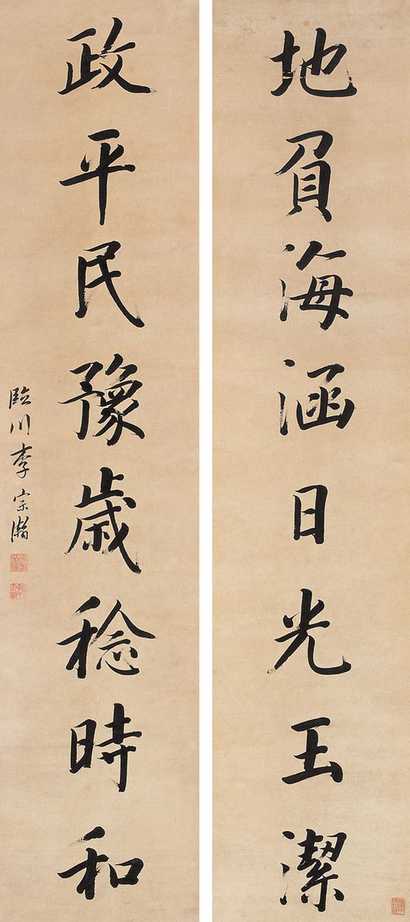 地負海涵日光玉潔
政平民豫歲稔時和
臨川李宗瀚